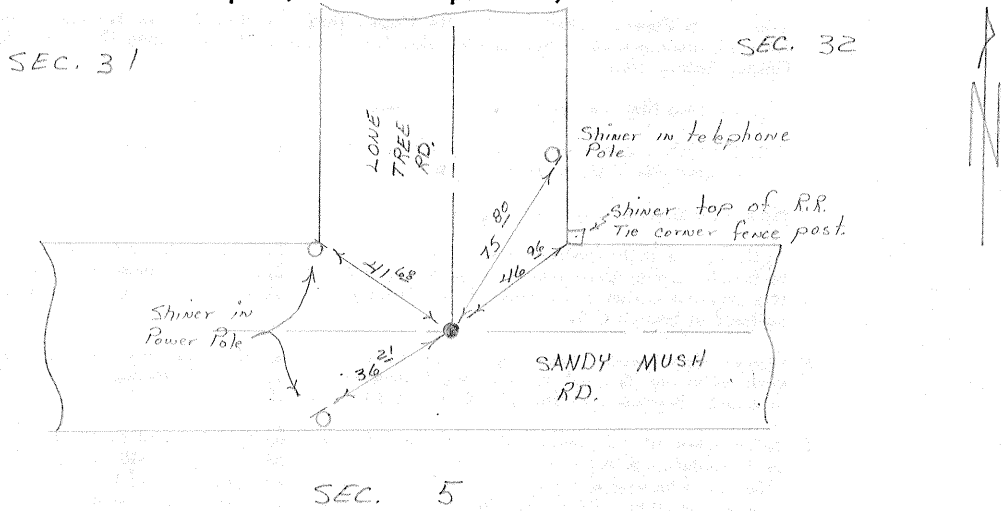 SEC. 31
SEC. 32
N
LONE
TREE
RD.
Shiner in telephone
Pole
Shiner top of R.R.
Tie corner fence post.
75 80
46 96
41 68
36 21
Shiner in
Power Pole
SANDY MUSH
RD.
SEC. 5